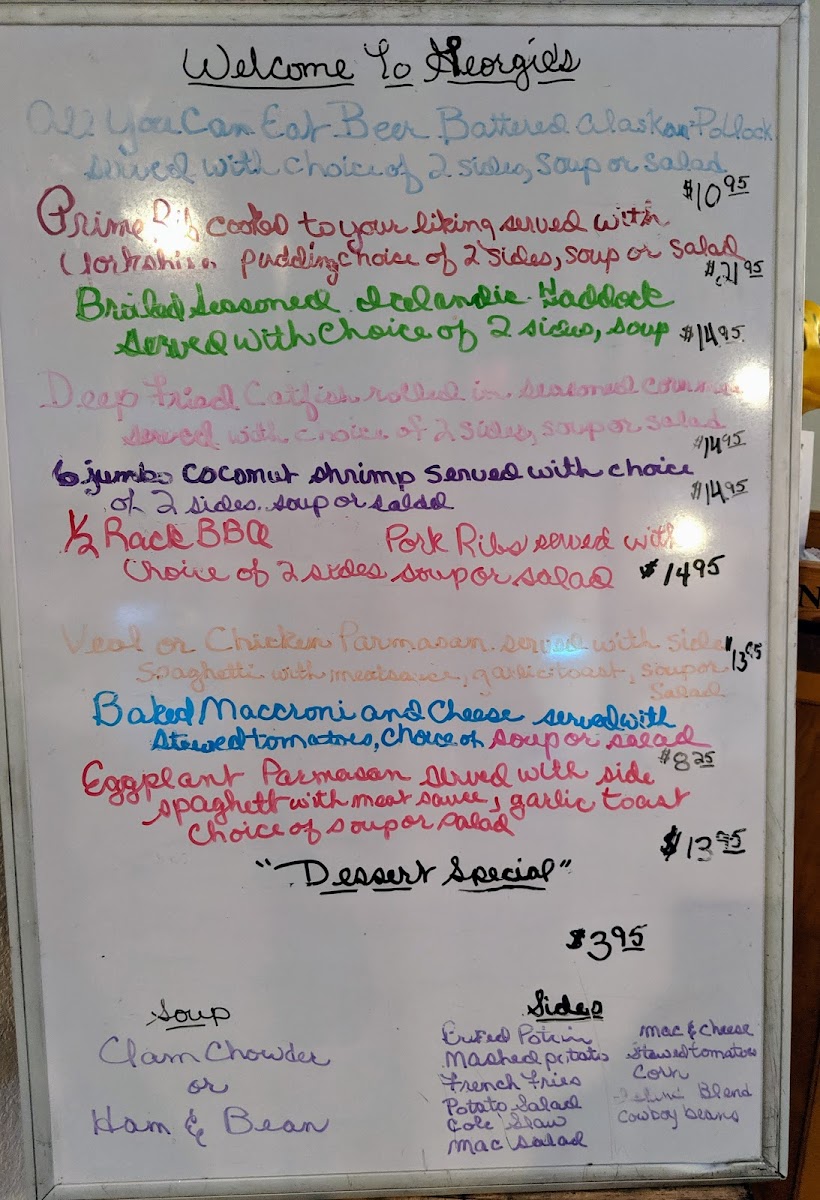 Welcome To Georgie's
All You Can Eat Beer Battered Alaskan Pollock
served with choice of 2 sides, soup or salad
$10 95
Prime Rib cooked to your liking served with
Yorkshire pudding choice of 2 sides, soup or salad
$21 95
Broiled Seasoned Icelandic Haddock
Served with Choice of 2 sides, soup $14 95
Deep Fried Catfish rolled in seasoned
served with choice of 2 sides, soup or salad
$14 95
6 jumbo coconut shrimp served with choice
of 2 sides. soup or salad $14 95
1/2 Rack BBQ Pork Ribs served with
Choice of 2 sides soup or salad $14 95
Veal or Chicken Parmasan served with side $13 95
Spaghetti with meatsauce, garlic toast, soup or
salad
Baked Maccroni and Cheese served with
stewed tomatoes, choice of soup or salad
$8 25
Eggplant Parmasan served with side
spaghetti with meat sauce, garlic toast
choice of soup or salad
$13 95
"Dessert Special"
$3 95
Soup
Clam Chowder
or
Ham & Bean
Sides
Mashed potato
French Fries
Potato Salad
Cole Slaw
Mac Salad
Mac & Cheese
Stewed tomatoes
Corn
Blend
Cowboy beans